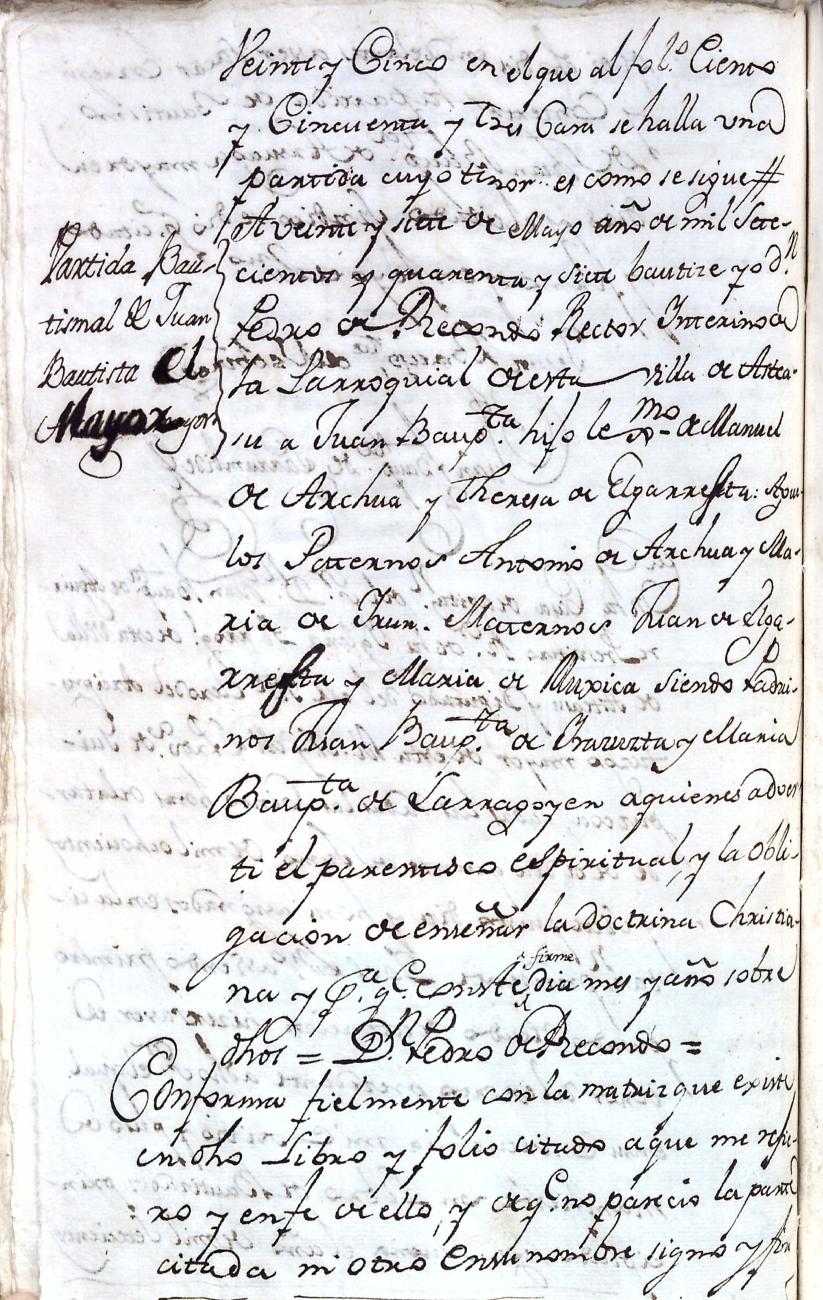 Veinte y Cinco en el que al fol.º Ciento
y Cincuenta y Tres Cara se halla una
partida cuyo tinor es como se sigue #
Partida Bau-
tismal de Juan
Bautista el
Mayor
A veinte y siete de Mayo año de mil sete-
cientos y quarenta y siete bautize yo d.n
Pedro de Recondo Rector Interino de
la Parroquial de esta villa de Astea-
su a Juan Baup.ta hijo le mo de Manuel
de Archua y Theresa de Elgarresta: Ague-
los Paternos Antonio de Archua y Ma-
ria de Irun. Maternos Juan de Elga-
rresta y Maria de Muxica siendo Padri-
nos Juan Baup.ta de y Maria
Baup.ta de Larragoyen a quienes adver
ti el parentisco espiritual, y la obli-
gacion de enseñar la doctrina Christia-
na y p.a q.e conste firme dia mes y año sobre
dhos = D.n Pedro de Recondo =
Conforma fielmente con la matriz que existe
en dho Libro y folio citado a que me refie-
ro y en fe de ello, y de q.e no parecio la parte
citada ni otro en su nombre signo y fir